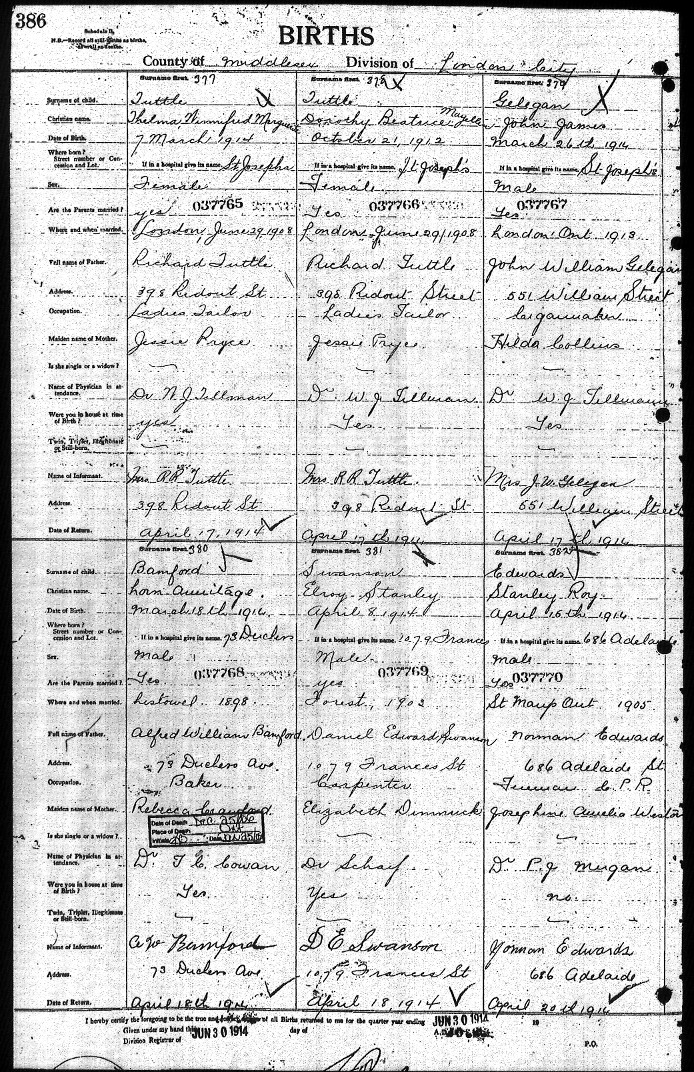 386
Schedule B.
N.B.—Record all still-births as births,
as well as deaths.
BIRTHS
County of Middlesex Division of London City
Surname first. 377 Surname first. 378 Surname first. 379
Surname of child. Tuttle Tuttle Gelegan
Christian name. Thelma Winnifred Marguerite Dorothy Beatrice John James
Date of Birth. 7 March 1914 October 21, 1912 March 26th 1914
Where born?
Street number or Concession and Lot. If in a hospital give its name. St Josephs If in a hospital give its name. St Joseph's If in a hospital give its name. St Joseph's
Sex. Female Female Male
037765 037766 037767
Are the Parents married? yes Yes Yes
Where and when married. London, June 29, 1908 London June 29/1908 London Ont 1913
Full name of Father. Richard Tuttle Richard Tuttle John William Gelegan
Address. 398 Ridout St 398 Ridout Street 551 William Street
Occupation. Ladies Tailor Ladies Tailor Cigarmaker
Maiden name of Mother. Jessie Pryce Jessie Prye Hilda Collins
Is she single or a widow?
Name of Physician in attendance. Dr W J Tillman Dr W J Tillman Dr W J Tillmann
Were you in house at time of Birth? yes Yes Yes
Twin, Triplet, Illegitimate or Still-born.
Name of Informant. Mrs. R R Tuttle Mrs. R R. Tuttle Mrs J. W. Gelegan
Address. 398 Ridout St 398 Ridout St 551 William Street
Date of Return. April 17, 1914 April 17th 1914 April 17th 1914
Surname first. 380 Surname first. 381 Surname first. 382
Surname of child. Bamford Swanson Edwards
Christian name. Armitage. Elroy Stanley Stanley Roy
Date of Birth. March 18th 1914 April 8, 1914 April 15th 1914
Where born?
Street number or Concession and Lot. If in a hospital give its name. 73 Duchess If in a hospital give its name. 1079 Frances If in a hospital give its name. 686 Adelaide
Sex. Male Male Male
037768 037769 037770
Are the Parents married? Yes yes Yes
Where and when married. Listowel 1898 Forest, 1902 Ont 1905
Full name of Father. Alfred William Bamford. Daniel Edward Swanson Norman Edwards
Address. 73 Duchess Ave. 1079 Frances St 686 Adelaide St
Occupation. Baker Carpenter C.P.R.
Maiden name of Mother. Rebecca Crawford Elizabeth Dimmick Josephine Aurelia Weston
Date of Death
Place of Death Ont
Initials Date
Is she single or a widow?
Name of Physician in attendance. Dr T C Cowan Dr Schaif Dr P. J Mugan
Were you in house at time of Birth? Yes Yes no
Twin, Triplet, Illegitimate or Still-born.
Name of Informant. A W Bamford D E Swanson Norman Edwards
Address. 73 Duchess Ave 1079 Frances St 686 Adelaide
Date of Return. April 18th 1914 April 18, 1914 April 20th 1914
I hereby certify the foregoing to be the true and of all Births returned to me for the quarter year ending JUN 30 1914 19
Given under my hand this JUN 30 1914 day of A.D.
Division Registrar of P.O.